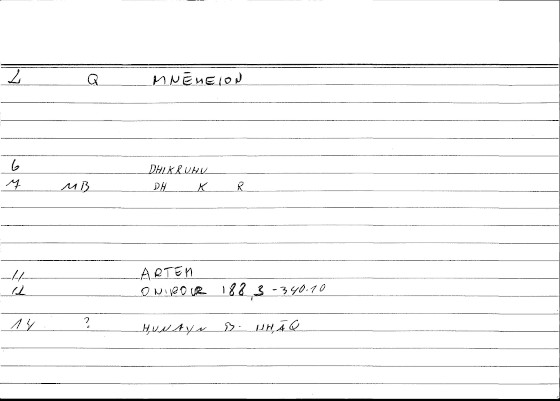 1 Q MNĒMEION
6 DHIKRUHU
7 MB DH K R
11 ARTEM
12 ONIROCR 188,3-340.10
14 ? ḤUNAYN B. ISḤĀQ